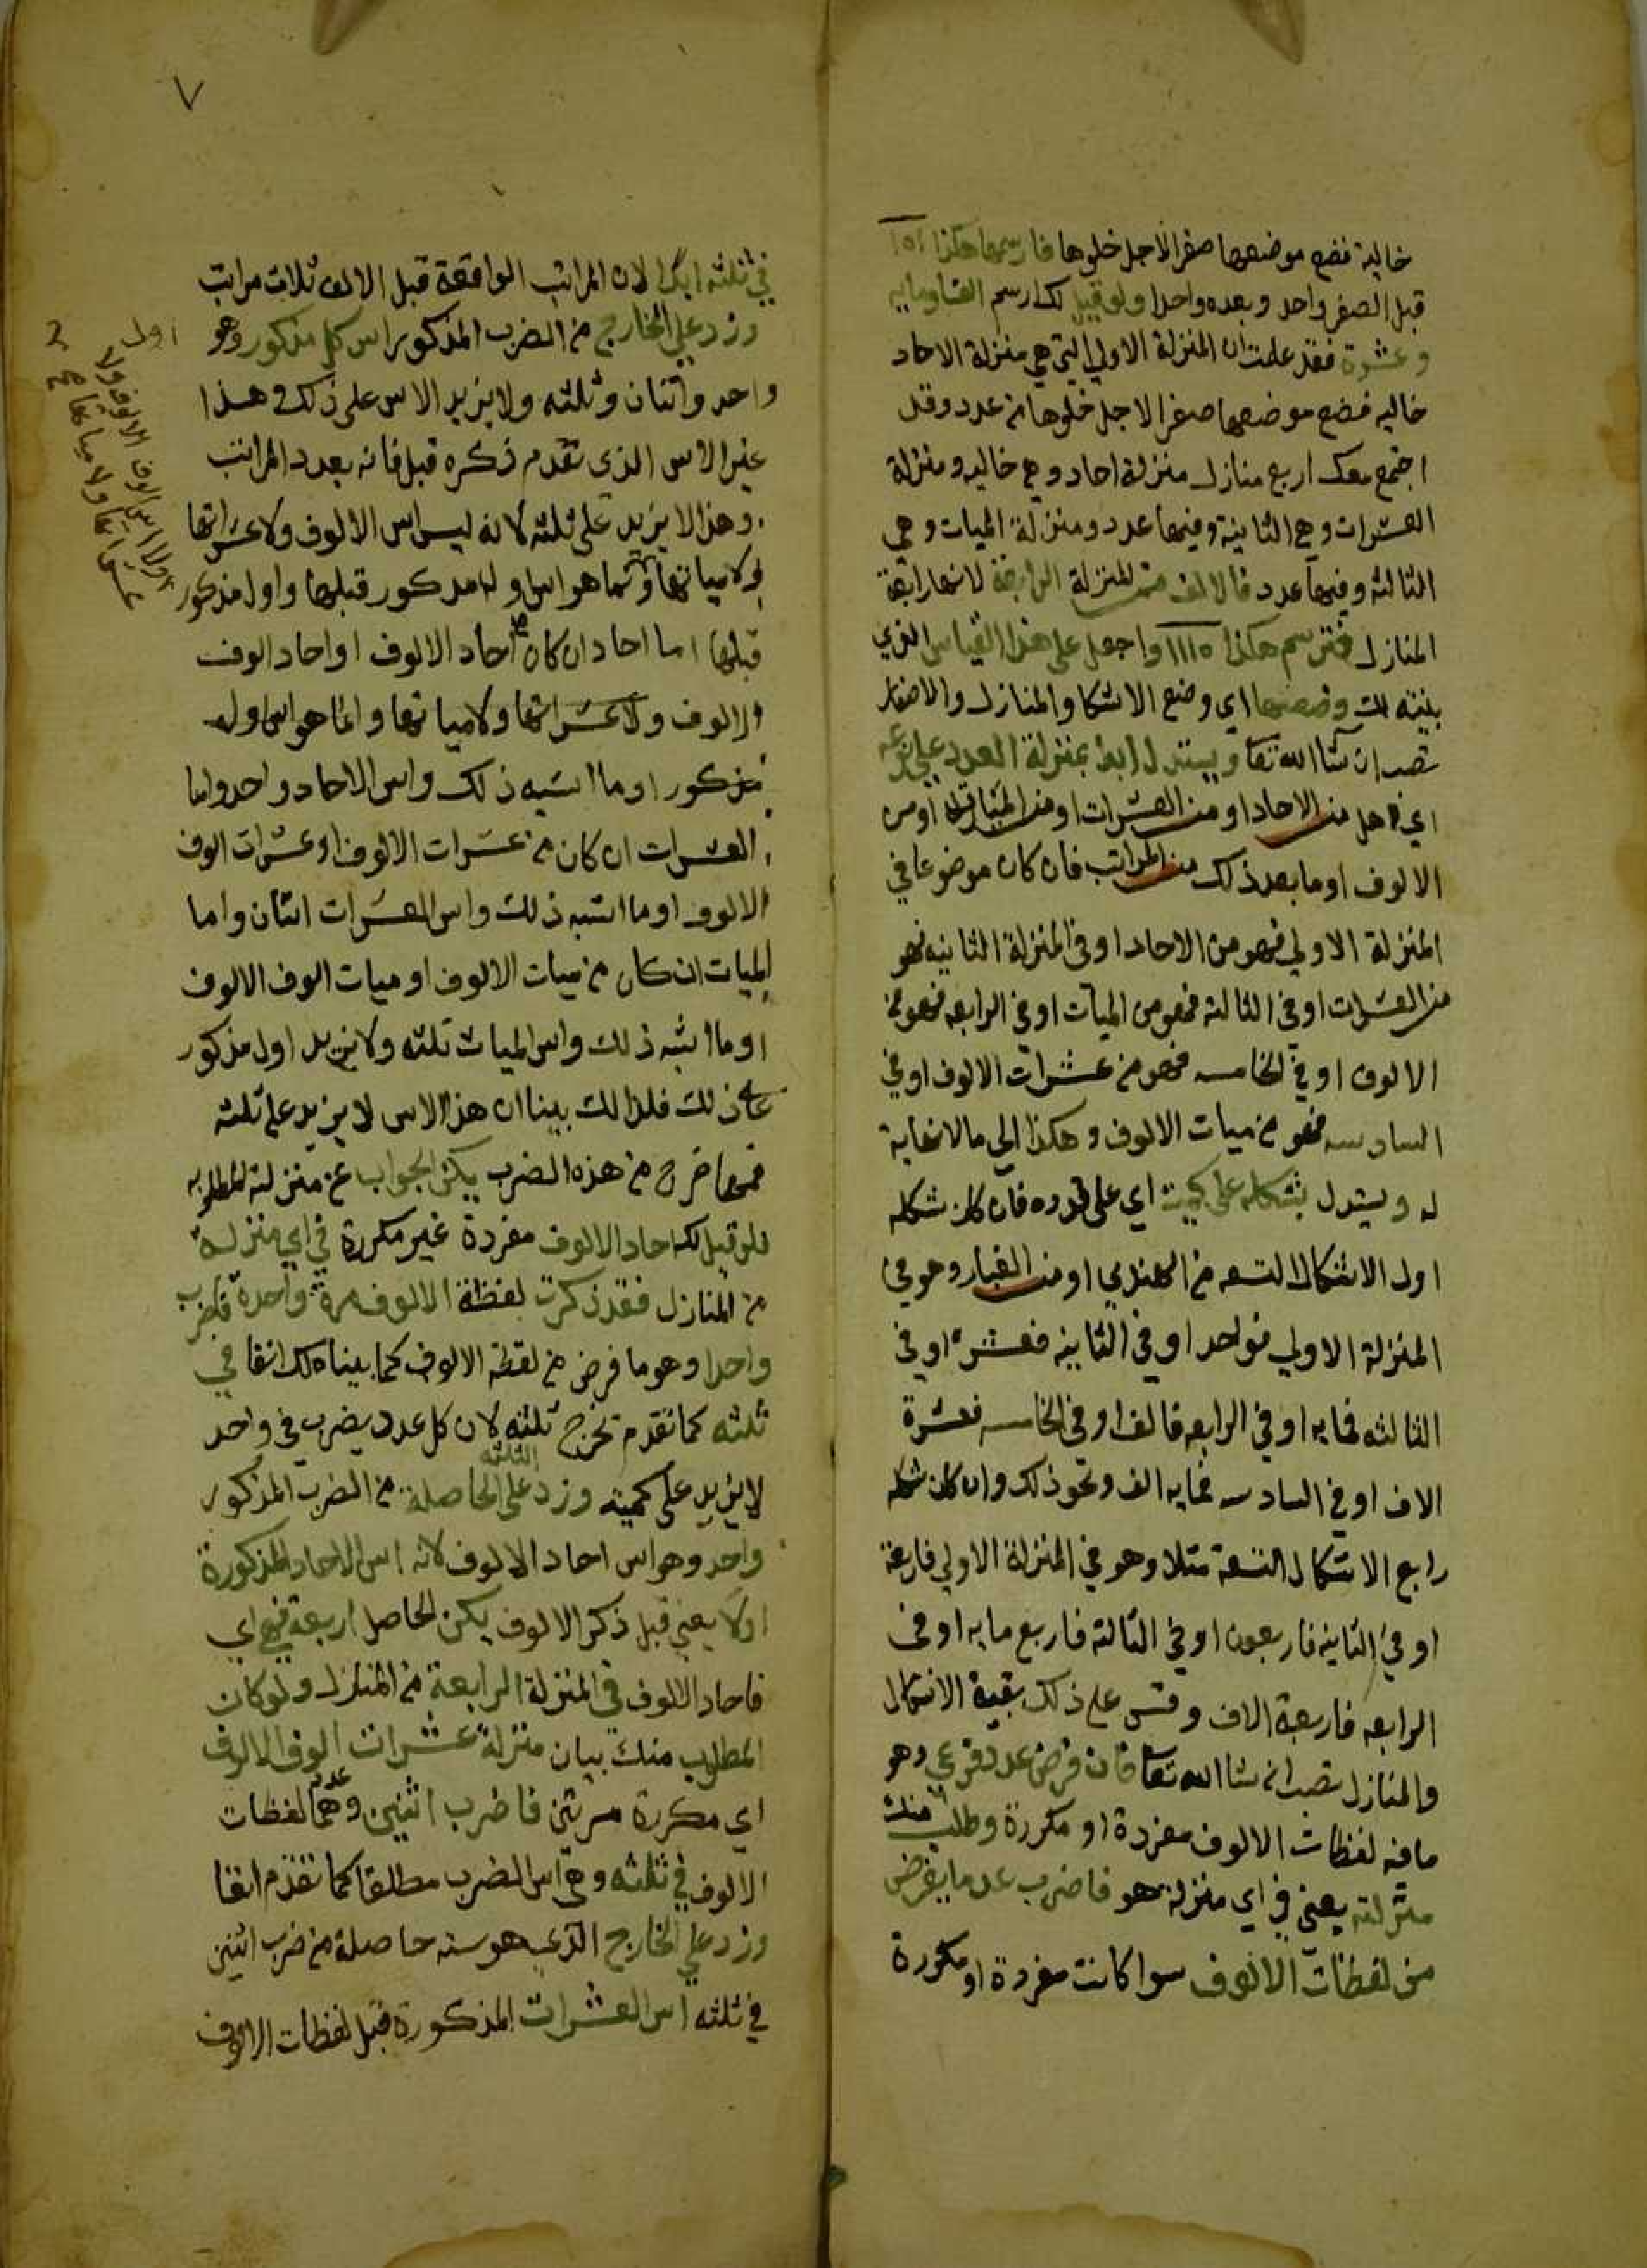 خالية فضع موضعها صفرا لاجل خلوها فارسمها هكذا ١٥١
قبل الصفر واحد وبعده واحدا ولو قيل لك ارسم الفا ومايه
وعشرة فقد علمت ان المنزلة الاولي التي هي منزلة الاحاد
خاليه فضع موضعها صفرا لاجل خلوها من عدد وقد
اجتمع معك اربع منازل منزلة احاد وهي خاليه ومنزلة
العشرات وهي الثانية وفيها عدد ومنزلة الميات وهي
الثالثه وفيها عدد فالالف من المنزلة الرابعة لانها رابعة
المنازل فترسم هكذا ١١١٥ واجعل على هذا القياس الذي
بينته لك وضعها اي وضع الاشكا والمنازل والاصفار
تصب ان شا الله تعا ويستدل ابدا بمنزلة العدد على نوعه
اي هل من الاحاد او من العشرات او من الميات او من
الالوف او ما بعد ذلك من المراتب فان كان موضوعا في
المنزلة الاولي فهو من الاحاد او في المنزلة الثانيه فهو
من العشرات او في الثالثة فهو من الميآت او في الرابعه فهو من
الالوف او في الخامسه فهو من عشرات الالوف او في
السادسه فهو من ميات الالوف وهكذا الي مالا نهاية
له ويستدل بشكله على كميته اي على قدره فان كان شكله
اول الاشكال التسعه من الهندي او من الغبار وهو في
المنزلة الاولي فواحد او في الثانيه فعشره او في
الثالثه فمايه او في الرابعه فالف او في الخامسه فعشرة
الاف او في السادسه فمايه الف ونحو ذلك وان كان شكله
رابع الاشكال التسعة مثلا وهو في المنزلة الاولي فاربعة
او في الثانيه فاربعون او في الثالثة فاربع مايه او في
الرابعه فاربعة الاف وقس على ذلك بقية الاشكال
والمنازل تصب ان شا الله تعا فان فرض عدد فرعي وهو
مافيه لفظات الالوف مفردة او مكررة وطلب منك
منزلته يعني في اي منزلة هو فاضرب عد ما يفرض
من لفظات الالوف سوا كانت مفردة او مكررة
٧
في ثلثه ابدا لان المراتب الواقعة قبل الالف ثلاث مراتب
وزد على الخارج من الضرب المذكور اس كل مذكور وهو
واحد واثنان وثلثه ولا يزيد الاس على ذلك وهذا
غير الاس الذي تقدم ذكره قبل فانه بعدد المراتب
وهذا لا يزيد على ثلثه لانه ليس اس الالوف ولا عشراتها
ولا مياتها وانما هو اس وله مذكور قبلها واول مذكور
قبلها اما احاد ان كان من احاد الالوف او احاد الوف
الالوف ولا عشراتها ولا مياتها وانما هو اس اوله
مذكور او ما اشبه ذلك واس الاحاد واحد واما
العشرات ان كان من عشرات الالوف او عشرات الوف
الالوف او ما اشبه ذلك واس العشرات اثنان واما
الميات ان كان من ميات الالوف او ميات الوف الالوف
او ما اشبه ذلك واس الميات ثلثه ولا يزيد اول مذكور
على ذلك فلذالك بينا ان هذا الاس لا يزيد على ثلثه
فمهما خرج من هذه الضرب يكن الجواب عن منزلة المطلوبه
فلو قيل لك احاد الالوف مفردة غير مكررة في اي منزلة
من المنازل فقد ذكرت لفظة الالوف مرة واحدة فاضرب
واحدا وهو ما فرض من لفظة الالوف كما بيناه لك انفا في
ثلثه كما تقدم تخرج ثلثه لان كل عدد يضرب في واحد
لا يزيد على كميته وزد على الثلثه الحاصلة من الضرب المذكور
واحد وهو اس احاد الالوف لانه اس الاحاد المذكورة
اولا يعني قبل ذكر الالوف يكن الحاصل اربعة فهي اي
فاحاد الالوف في المنزلة الرابعة من المنازل ولو كان
المطلوب منك بيان منزلة عشرات الوف الالوف
اي مكررة مرتين فاضرب اثنين وهما عدد لفظات
الالوف في ثلثه وهي اس الضرب مطلقا كما تقدم انفا
وزد على الخارج الذي هو سته حاصلة من ضرب اثنين
في ثلثه اس العشرات المذكورة قبل لفظات الالوف
اول
اولا اس الوف الالوف ولا
عشراتها ولا مياتها صح